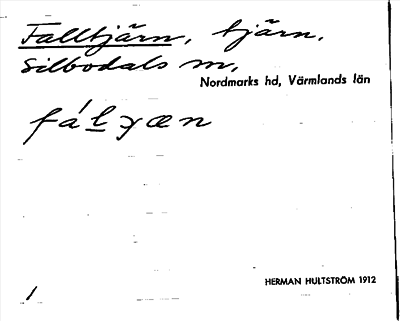 Falltjärn, tjärn,
Silbodals m,
Nordmarks hd, Värmlands län
fálɣæn
HERMAN HULTSTRÖM 1912
1